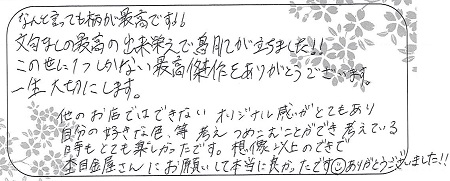 なんと言っても柄が最高です!!
文句なしの最高の出来栄えで鳥肌が立ちました!!
この世に1つしかない最高傑作をありがとうございます。
一生大切にします。
他のお店ではできないオリジナル感がとてもあり
自分の好きな色、等考えつめこむことができ考えている
時もとても楽しかったです。想像以上のできで
本目金屋さんにお願いして本当に良かったです☺ありがとうございました!!